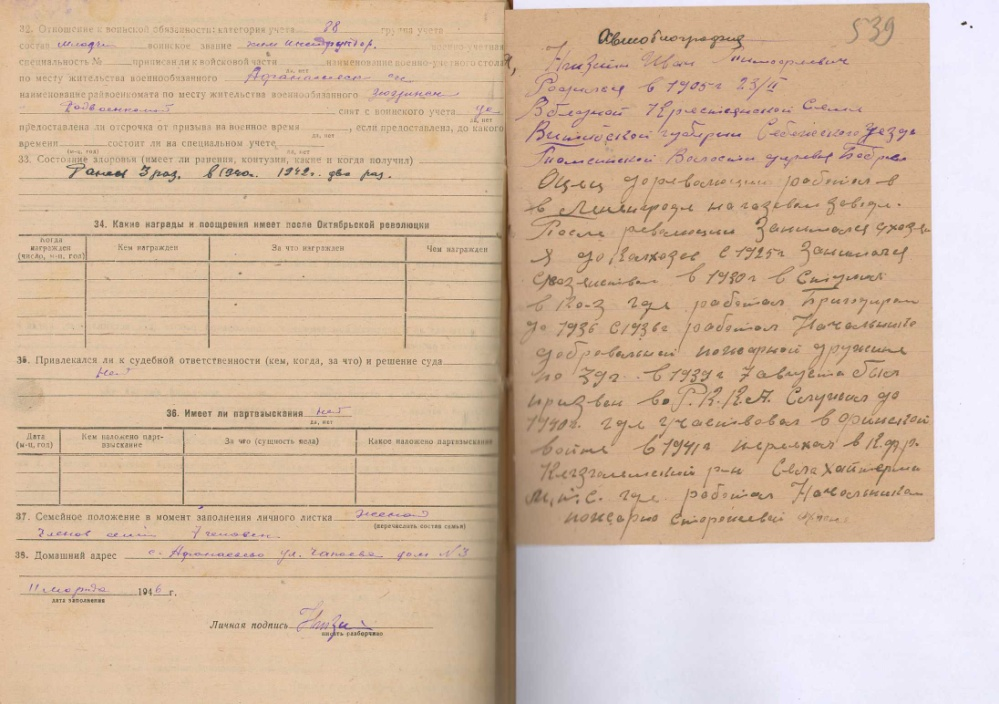 32. Отношение к воинской обязанности: категория учета 28 группа учета
состав младш воинское звание хим инструктор. военно-учетная
специальность № приписан ли к войсковой части наименование военно-учетного стола
да, нет
по месту жительства военнообязанного Афанасьевск
наименование райвоенкомата по месту жительства военнообязанного
снят с воинского учета да
да, нет
предоставлена ли отсрочка от призыва на военное время , если предоставлена, до какого
да, нет
времени состоит ли на специальном учете
(м-ц, год) да, нет
33. Состояние здоровья (имеет ли ранения, контузии, какие и когда получил)
Ранен 3 раз. в 1940г. 1942г. два раз.
34. Какие награды и поощрения имеет после Октябрьской революции
Когда награжден (число, м-ц, год) Кем награжден За что награжден Чем награжден
35. Привлекался ли к судебной ответственности (кем, когда, за что) и решение суда
Нет
36. Имеет ли партвзыскания нет
да, нет
Дата (м-ц, год) Кем наложено партвзыскание За что (сущность дела) Какое наложено партвзыскание
37. Семейное положение в момент заполнения личного листка женат
(перечислить состав семьи)
Членов семьи 7 человек
38. Домашний адрес с. Афанасьево ул. Чапаева дом № 3
11 марта 1946 г.
дата заполнения
Личная подпись
писать разборчиво
539
Автобиография
Иван Тимофеевич
Родился в 1905 г 23/II
В бедной Крестьянской Семье
Витебской губернии Себежского уезда
Волости деревня Боброво
Отец до революции работал в
в Ленинграде на газовом заводе.
После революции Занимался
х до Колхозов с 1925 г Занимался
в 1930 г в Ступил
в К-з где работал Бригадиром
до 1936 с 1936 г работал Начальник
добровольной пожарной дружины
по 39 г. в 1939 г 7 августа был
призван в Р.К.К.А. Служил до
1940 г. где участвовал в финской
войне в 1941 г переехал в К.ф.р.
Кегсгольмский р-н Села Хайтермаа
М.Т.С. где работал Начальником
пожарно Сторожевой